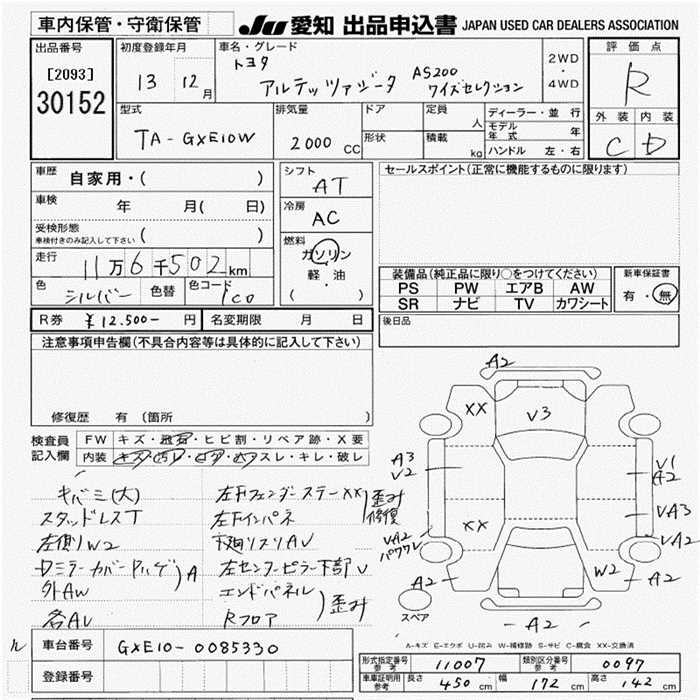 車内保管・守衛保管
JU 愛知 出品申込書 JAPAN USED CAR DEALERS ASSOCIATION
出品番号
[2093]
30152
初度登録年月
13 12月
車名・グレード
トヨタ
アルテッツァジータ AS200 ワイズセレクション
2WD
・
4WD
評価点
R
外装 内装
C D
型式
TA-GXE10W
排気量
2000 CC
ドア
形状
定員 人
積載 kg
ディーラー・並行
モデル年式 年
ハンドル 左・右
車歴 自家用・( )
車検 年 月( 日)
受検形態
車検付きのみ記入して下さい ( )
走行
11万6千502km
色 シルバー 色替 色コード 1C0
シフト
AT
冷房
AC
燃料
ガソリン
軽・油
( ・ )
セールスポイント(正常に機能するものに限ります)
装備品(純正品に限り○をつけてください)
PS PW エアB AW
SR ナビ TV カワシート
新車保証書
有・無
R券 ¥12.500- 円 名変期限 月 日
後日品
注意事項申告欄(不具合内容等は具体的に記入して下さい)
修復歴 有 (箇所
検査員
記入欄
FW キズ・飛石・ヒビ割・リペア跡・X要
内装 キズ・汚レ・ピク・穴・スレ・キレ・破レ
キバミ(大)
スタッドレスT
左側リW2
Dミラーカバー
外AW
A
各AV
左Fフェンダーステーxx
左Fインパネ
歪み
修復
下廻リスリAV
左センターピラー下部V
エンドパネル
Rフロア
歪み
A2
XX
V3
A3
V2
V1
A2
VA3
XX
VA2
VA2
A2
W2
A2
スペア
A2
A-キズ E-エクボ U-凹み W-補修跡 S-サビ C-腐食 XX-交換済
ル
車台番号 GXE10-0085330
登録番号
形式指定番号
参考
11007
類別区分番号
参考
0097
車庫証明用
参考
長さ 450 cm 幅 172 cm 高さ 142 cm